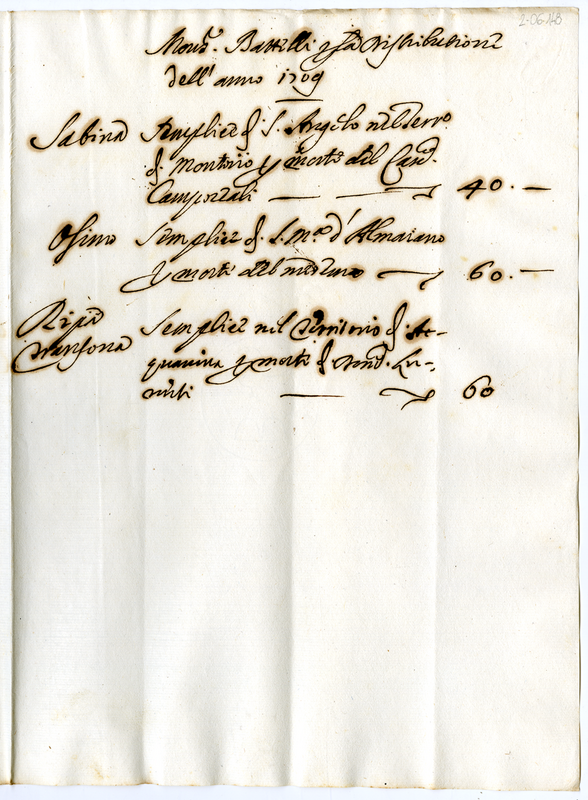 2-06-148
Mons.r Battelli p la distribuzione
dell' anno 1709
Sabina Semplice di S. Angelo nel Terro
di Montorio p morte del Card.
Campeggi — 40. —
Osimo Semplice di S. M.a d' Almaiano
p morte del medemo — 60. —
Ripa Semplice nel Territorio di Ac-
transona quaviva p morte di Mons.
— 60